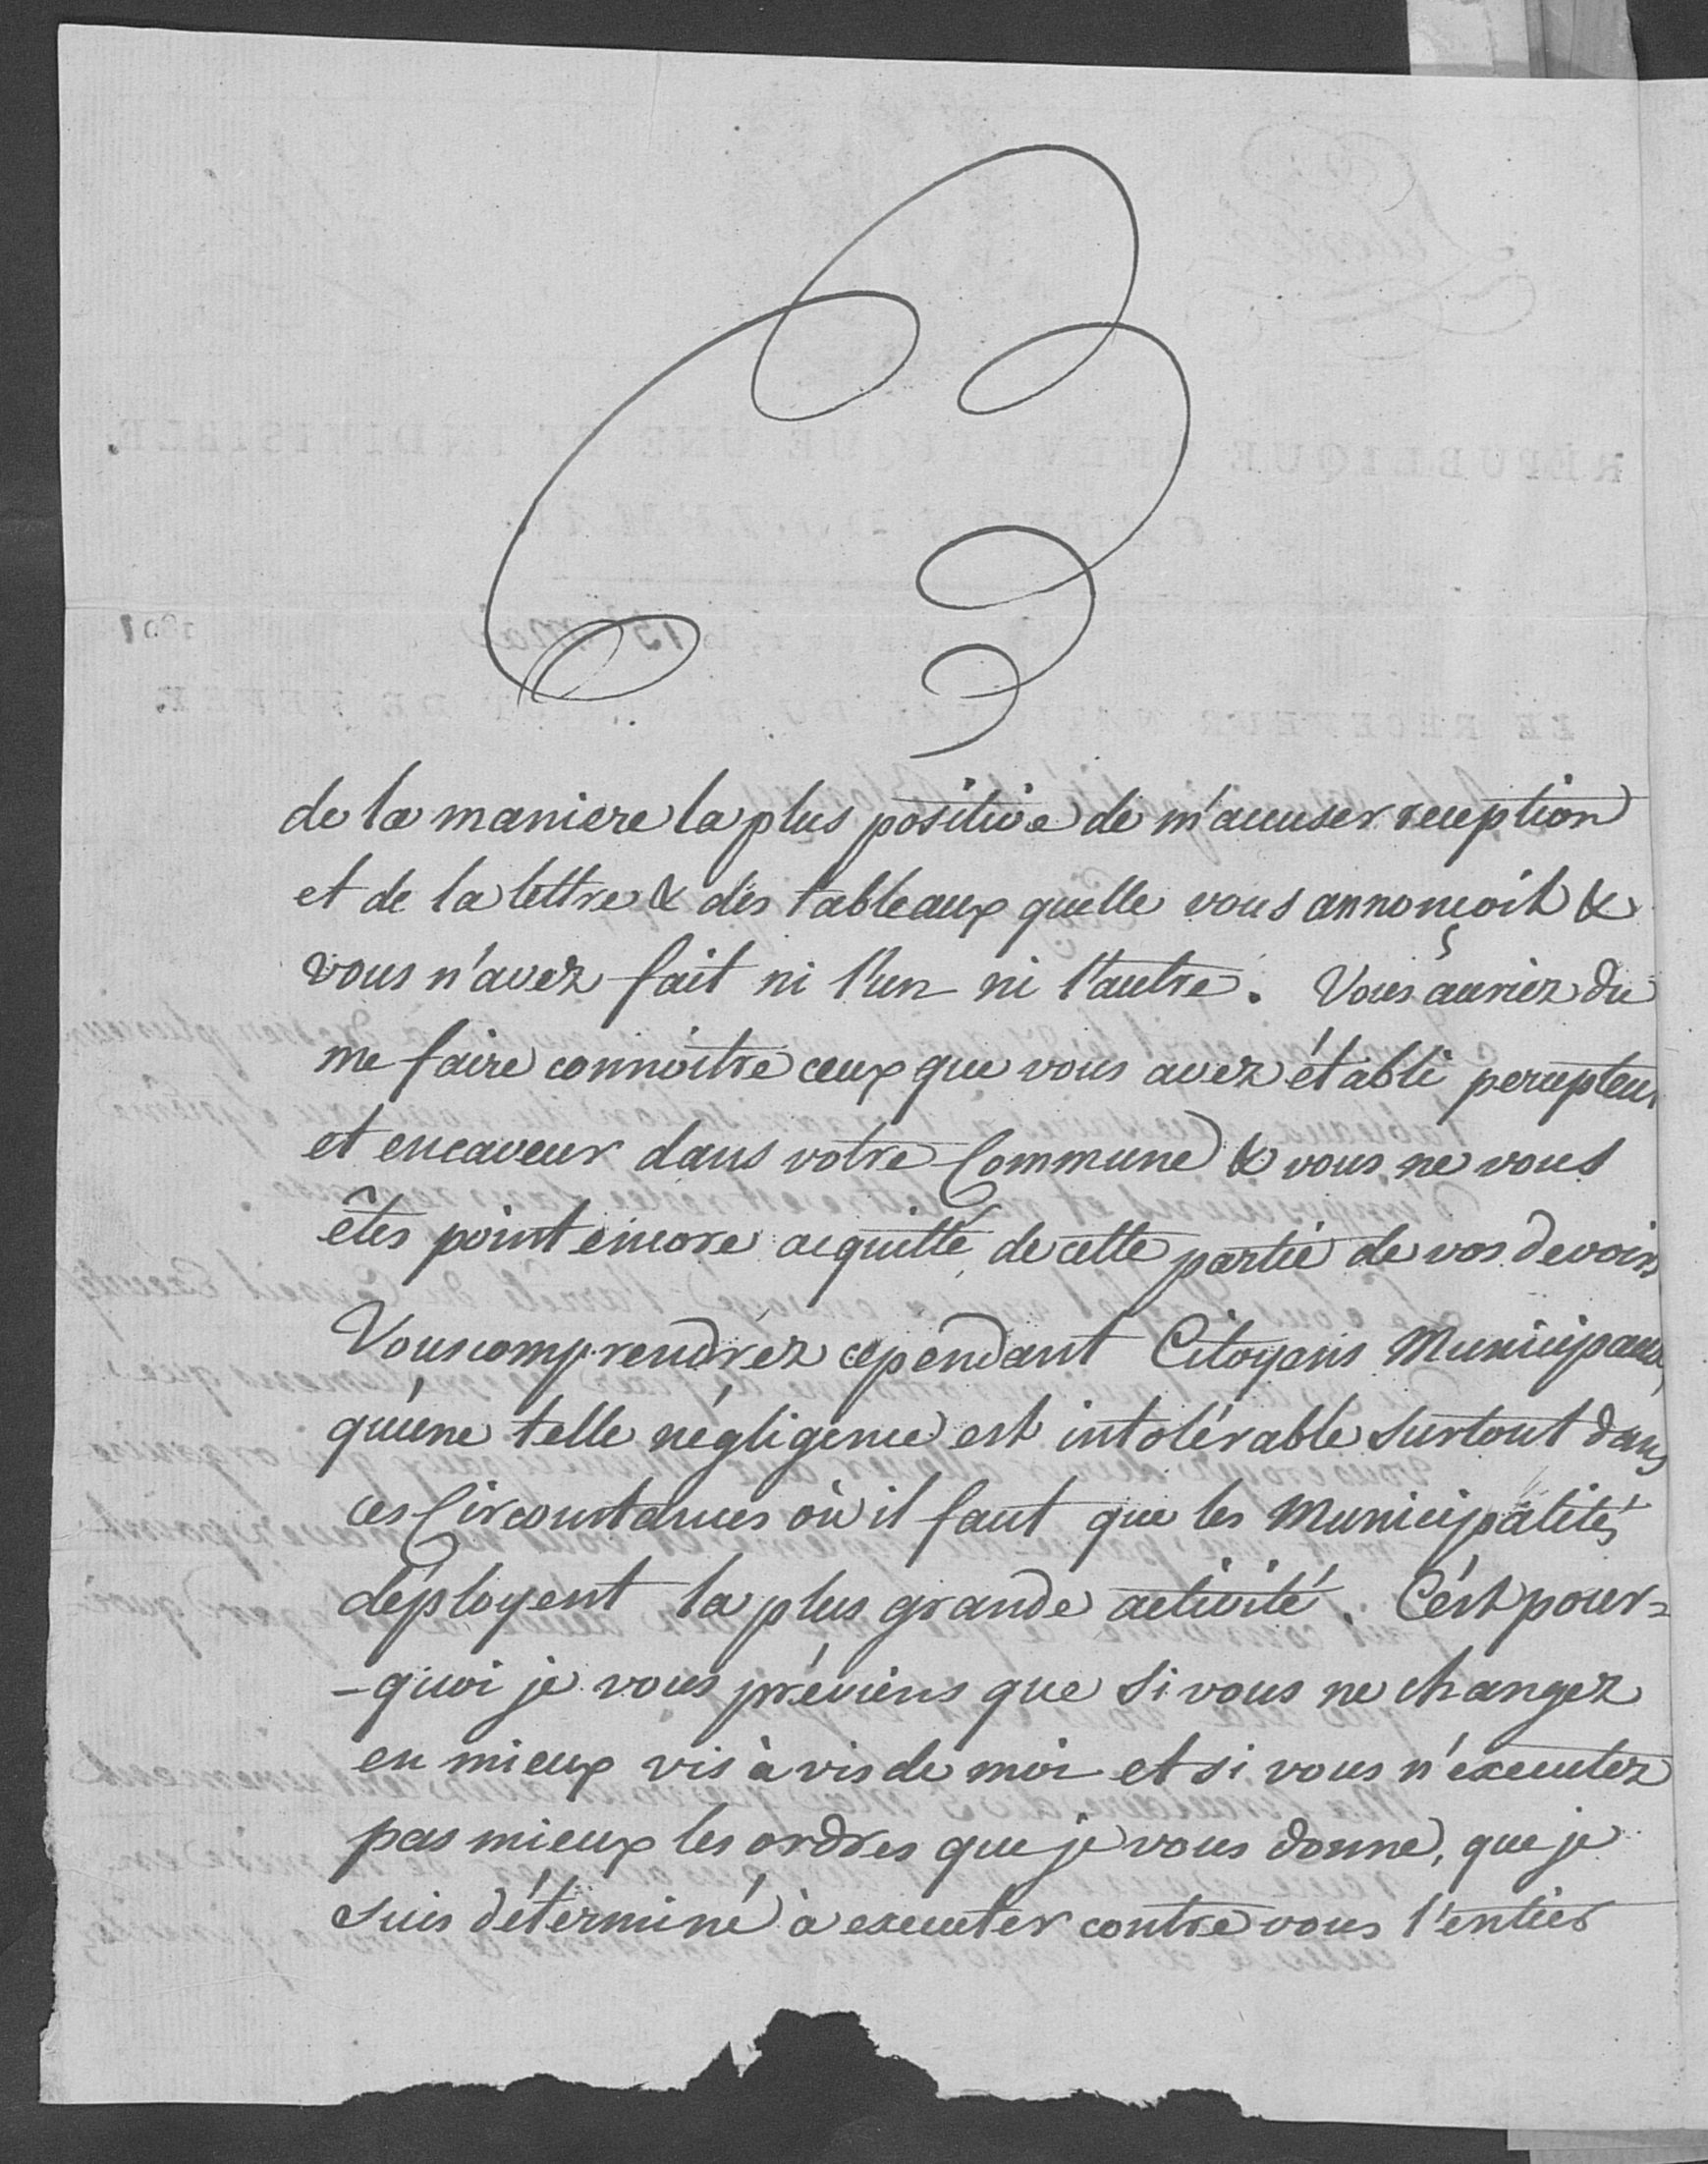 de la maniere la plus positive de m'accuser reception
et de la lettre & des tableaux quelle vous annonçoit &
vous n'avez fait ni l'un ni l'autre. Vous auriez du
me faire connoitre ceux que vous avez établi percepteur
et encaveur dans votre Commune & vous ne vous
êtes point encore acquitté de cette partie de vos devoirs
Vous comprendrez cependant Citoyens Municipaux,
qu'une telle négligence est intolérable surtout dans
ces Circonstances où il faut que les Municipalités
déployent la plus grande activité. C'est pour=
-quoi je vous préviens que si vous ne changez
en mieux vis à vis de moi et si vous n'executez
pas mieux les ordres que je vous donne, que je
suis déterminé à executer contre vous l'entier